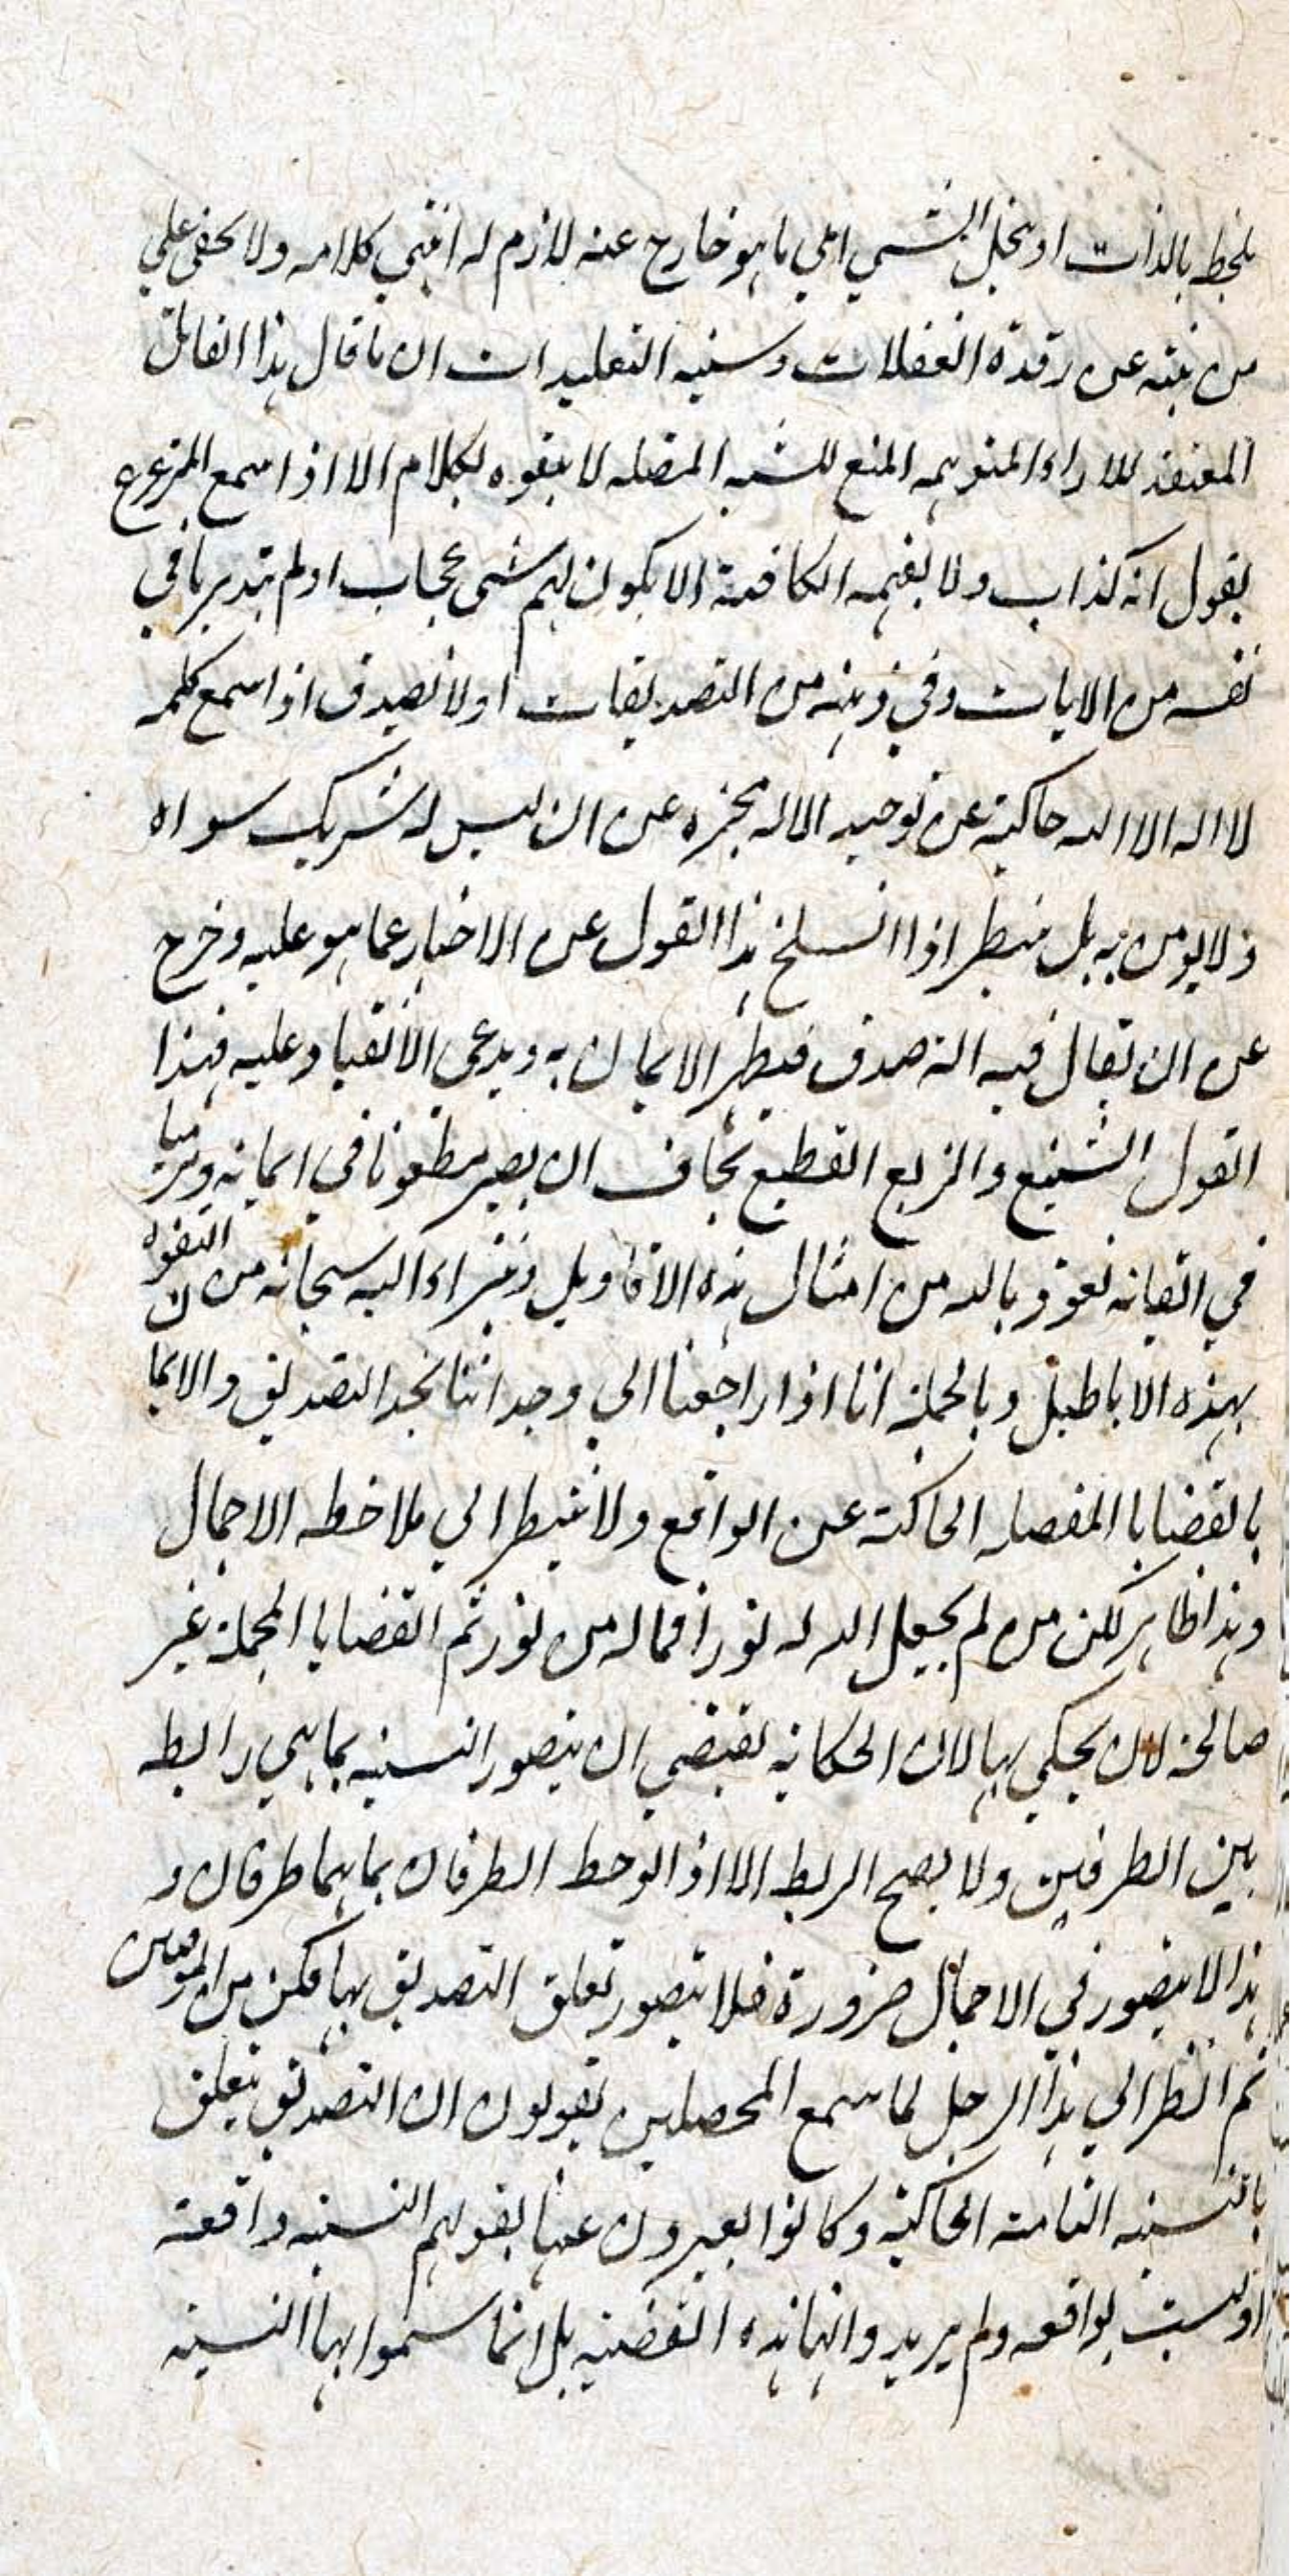 يلحظ بالذات او ينحل الشي الي ما هو خارج عنه لازم له انتهي كلامه ولا يخفى علي
من نبته عن رقدة الغفلات وسنيه التقليدات ان ما قال هذا القائل
المعتقد للاراء المتوهمه المنع للشبه المضله لا يتفوه بكلام الا اذا سمع المتزعزع
يقول انه كذاب ولا يفهمه الكافة الا يكون لهم شي عجاب اولم يتدبر ما في
نفسه من الايات وفي ذهنه من التصديقات اولا يصدق اذا سمع كلمه
لا اله الا الله حاكية عن توحيد الاله مخبره عن ان ليس له شريك سواه
ولا يومن به بل ينتظر اذا انسلخ هذا القول عن الاخبار عما هو عليه وخرج
عن ان يقال فيه انه صدق فيظهر الايمان به ويدعي الانقياد عليه فهذا
القول الشنيع والزيع الفظيع يخاف ان يصير مطعونا في ايمانه ومرميا
في اتقانه نعوذ بالله من امثال هذه الاقاويل ونبراء اليه سبحانه من التفوه
بهذه الاباطيل وبالجملة انا اذا راجعنا الي وجداننا نجد التصديق والايمان
بالقضايا المفصله الحاكية عن الواقع ولا ننتظر الي ملاحظه الاجمال
وهذا ظاهر لكن من لم يجعل الله له نورا فما له من نور ثم القضايا المجملة غير
صالحة لان يحكي بها لان الحكاية يقتضي ان يتصور النسبه بما هي رابطه
بين الطرفين ولا يصح الربط الا اذا لوحظ الطرفان بما هما طرفان و
هذا لا يتصور في الاجمال ضرورة فلا يتصور تعلق التصديق بها فكن من الموقنين
ثم انظر الي هذا الرجل لما سمع المحصلين يقولون ان التصديق يتعلق
بالنسبه التامة الحاكية وكانوا يعبرون عنها بقولهم النسبه واقعة
اوليست بواقعه ولم يريدوا بها هذه القضيه بل انما سموا بها النسبه